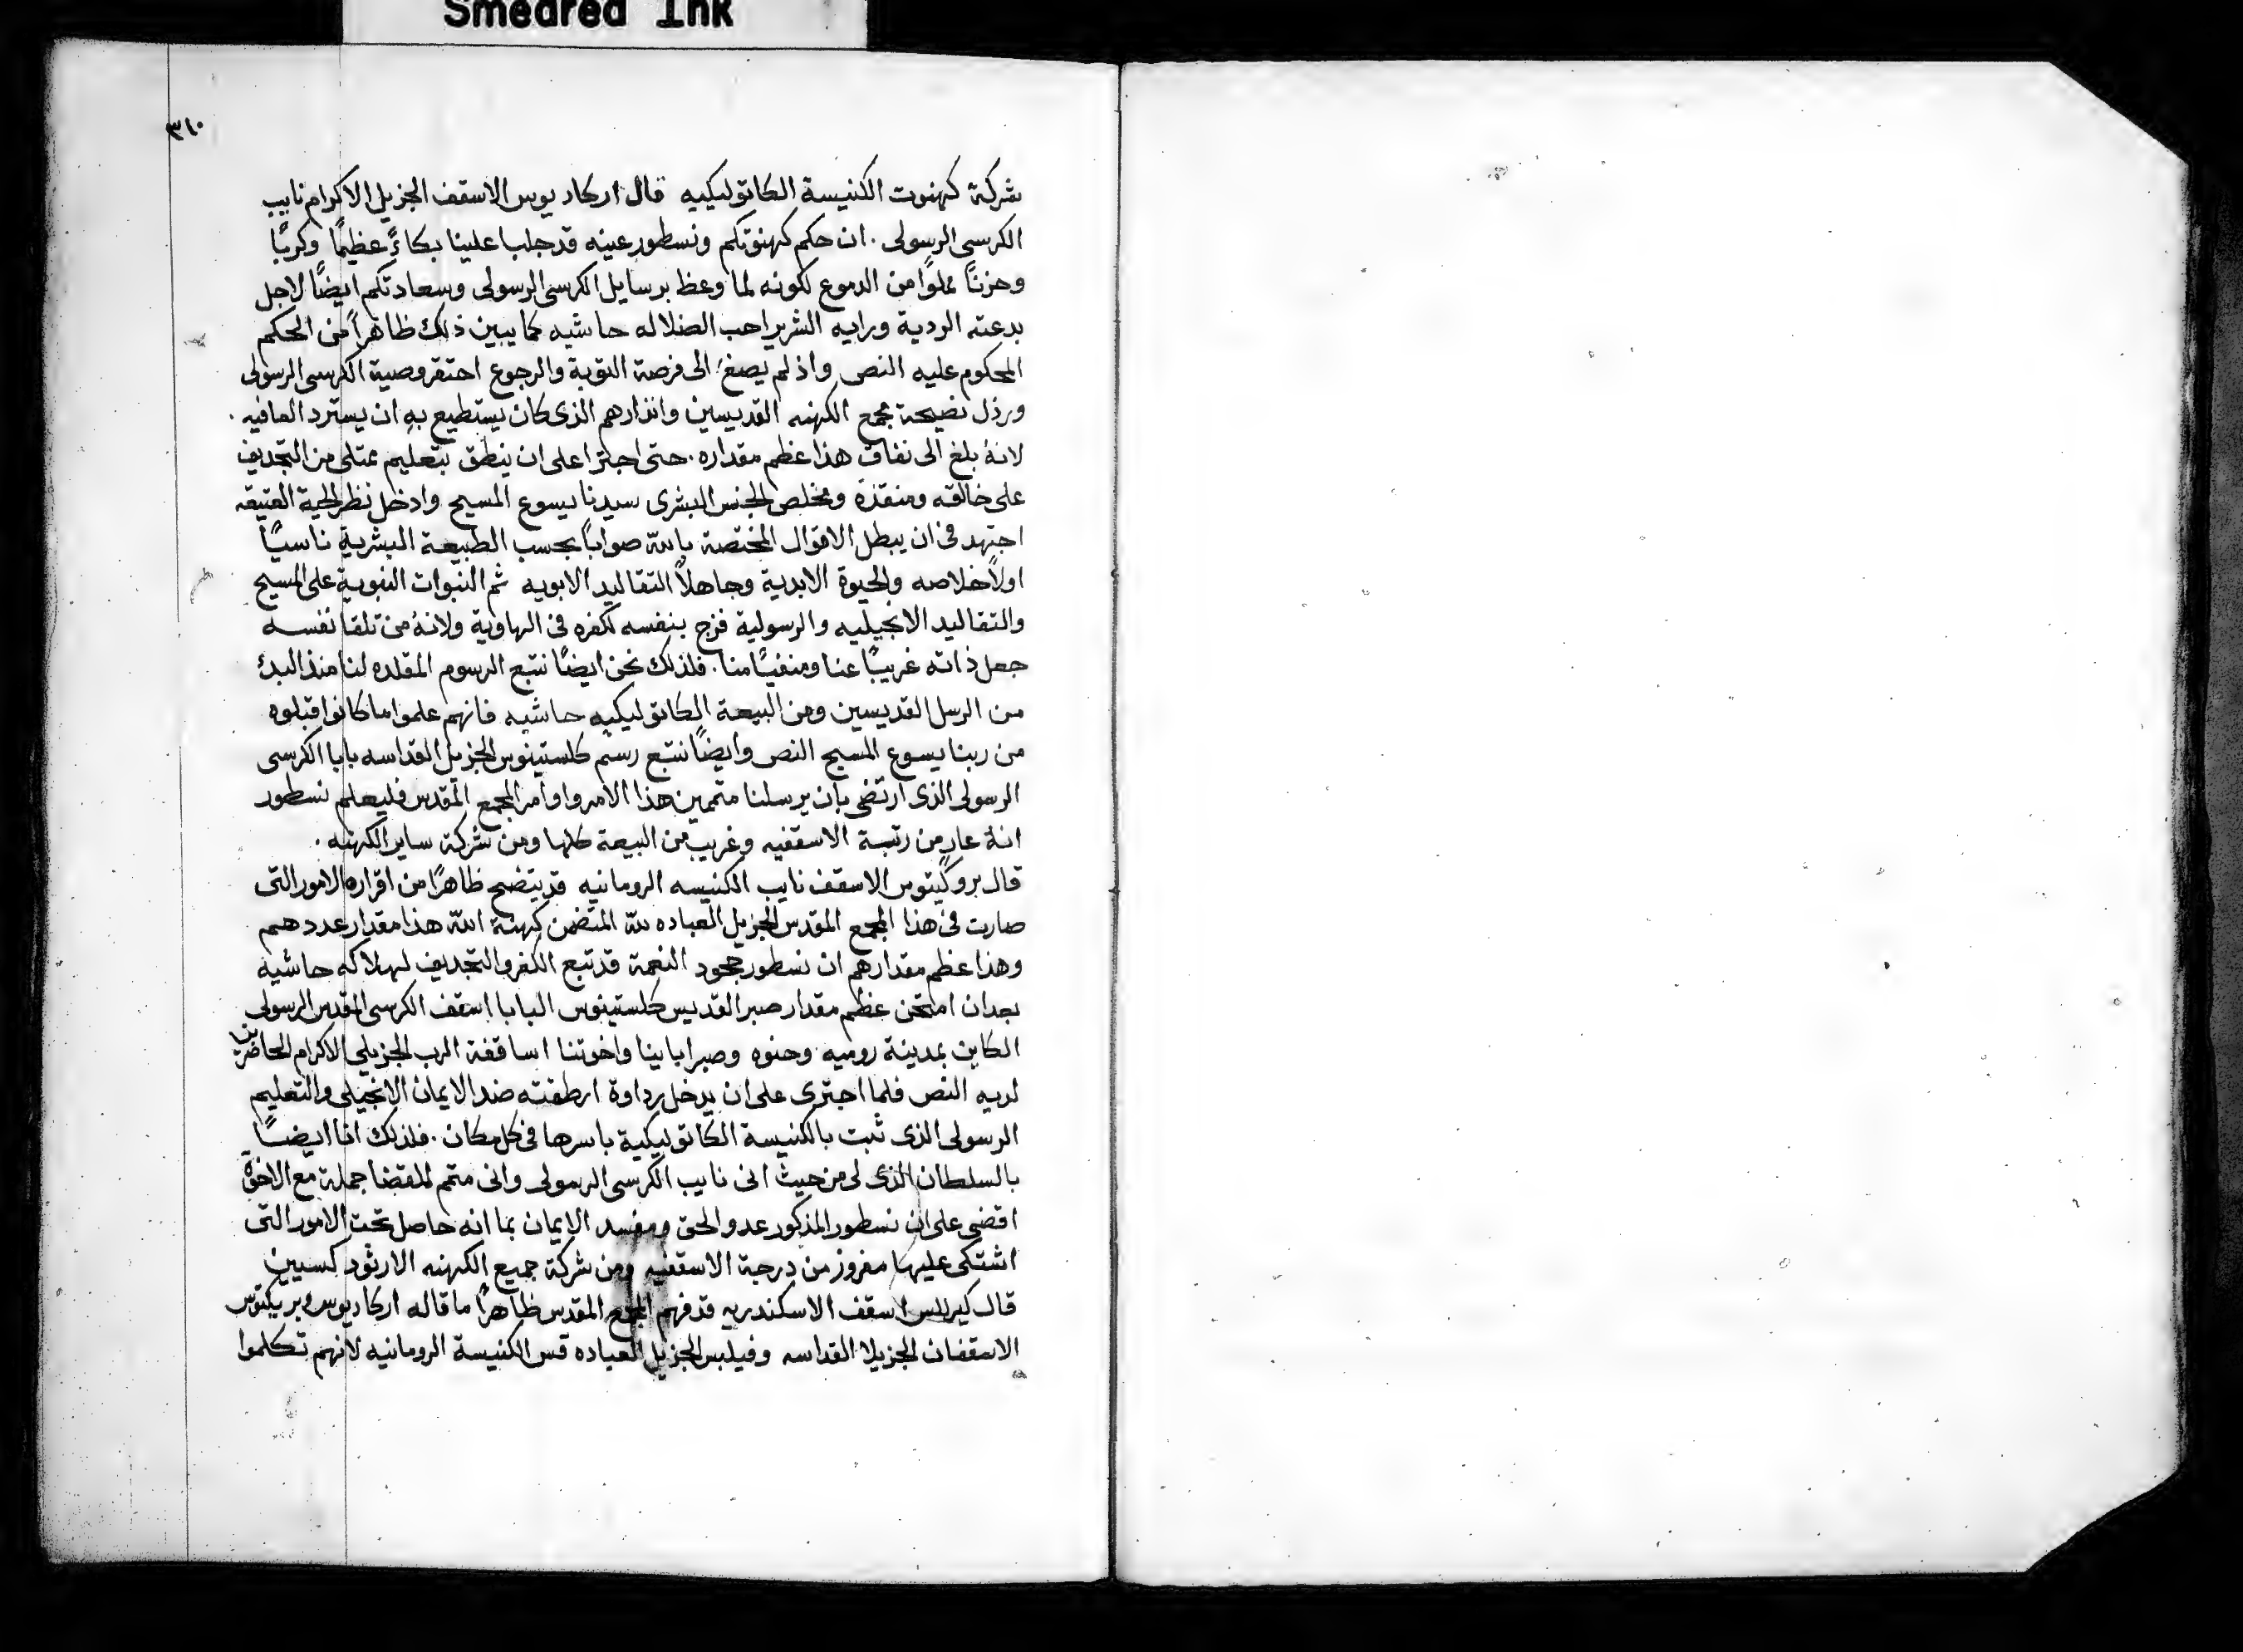 Smeared Ink
٣١٠
شركة كهنوت الكنيسة الكاتوليكيه قال اركاديوس الاسقف الجزيل الاكرام نايب
الكرسى الرسولى . ان حكم كهنوتكم ونسطور عينه قد جلب علينا بكاءً عظيمًا وكربًا
وحزنًا مملوًا من الدموع لكونه لما وعظ برسايل الكرسى الرسولى وسعادتكم ايضًا لاجل
بدعته الردية ورايه الشرير احب الضلاله حاشيه كما يبين ذلك ظاهراً من الحكم
المحكوم عليه النص واذ لم يصغ الى فرصة التوبة والرجوع احتقر وصية الكرسى الرسولى
ورذل نصيحة مجمع الكهنه القديسين وانذارهم الذى كان يستطيع به ان يسترد العافيه .
لانهُ بلغ الى نفاق هذا عظم مقداره . حتى اجترا على ان ينطق بتعليم ممتلى من التجديف
على خالقه ومنقذه ومخلص الجنس البشرى سيدنا يسوع المسيح وادخل نظر الحية العتيقه
اجتهد فى ان يبطل الاقوال المختصة بالله صواباً بحسب الطبيعة البشرية ناسيًا
اولاً خلاصه والحيوة الابدية وجاهلاً التقاليد الابويه ثم النبوات النبوية على المسيح
والتقاليد الانجيليه والرسولية فزج بنفسه لكفره فى الهاوية ولانهُ من تلقا نفسه
جعل ذاته غريبًا عنا ومنفيًا منا . فلذلك نحن ايضًا نتبع الرسوم المقلده لنا منذ البدئ
من الرسل القديسين ومن البيعة الكاتوليكيه حاشيه فانهم علموا ما كانوا قبلوه
من ربنا يسوع المسيح النص وايضًا نتبع رسم كلستينوس الجزيل القداسه بابا الكرسى
الرسولى الذى ارتضى بان يرسلنا متممين هذا الامر واوامر المجمع المقدس فليعلم نسطور
انهُ عارٍ من رتبة الاسقفيه وغريب من البيعة كلها ومن شركة ساير الكهنه .
قال بروكيتوس الاسقف نايب الكنيسه الرومانيه قد يتضح ظاهرًا من اقراره الامور التى
صارت فى هذا المجمع المقدس الجزيل العباده لله المتضمن كهنة الله هذا مقدار عددهم
وهذا عظم مقدارهم ان نسطور جحود النعمة قد تبع الكفر والتجديف لهلاكه حاشيه
بعد ان امتحن عظم مقدار صبر القديس كلستينوس البابا اسقف الكرسى المقدس الرسولى
الكاين بمدينة روميه وحنوه وصبر اباينا واخوتنا اساقفة الرب الجزيلى الاكرام الحاضرين
لديه النص فلما اجترى على ان يدخل رداوة ارطقته ضد الايمان الانجيلى والتعليم
الرسولى الذى ثبت بالكنيسة الكاتوليكية باسرها فى كل مكان . فلذلك انا ايضًا
بالسلطان الذى لى من حيث انى نايب الكرسى الرسولى وانى متمم للقضا جملة مع الاخوة
اقضى على ان نسطور المذكور عدو الحق ومفسد الايمان بما انه حاصل تحت الامور التى
اشتكى عليها مفروز من درجة الاسقفيه ومن شركة جميع الكهنه الارثودكسيين
قال كيرللس اسقف الاسكندريه قد فهم المجمع المقدس ظاهرًا ما قاله اركاديوس وبريكتوس
الاسقفان الجزيلا القداسه وفيلبس الجزيل العباده قس الكنيسة الرومانيه لانهم تكلموا